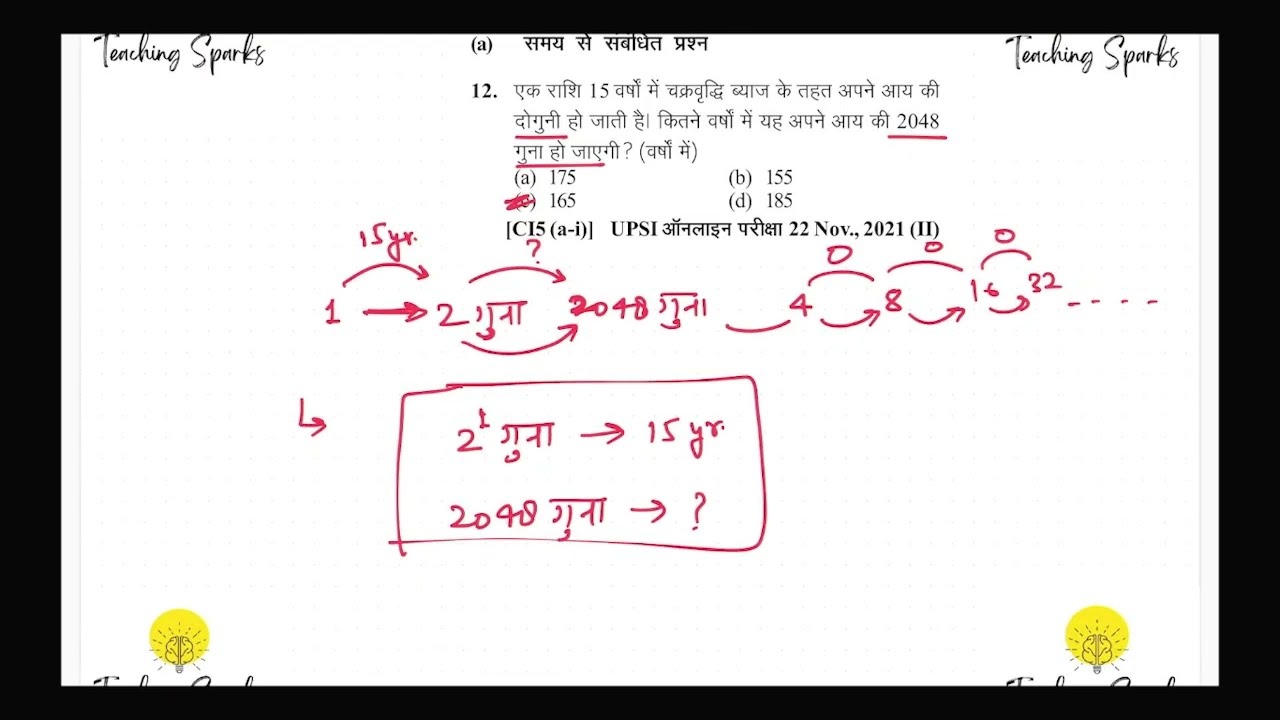 Teaching Sparks
(a) समय से संबंधित प्रश्न
Teaching Sparks
12. एक राशि 15 वर्षों में चक्रवृद्धि ब्याज के तहत अपने आय की
दोगुनी हो जाती है। कितने वर्षों में यह अपने आय की 2048
गुना हो जाएगी? (वर्षों में)
(a) 175 (b) 155
(c) 165 (d) 185
[CI5 (a-i)] UPSI ऑनलाइन परीक्षा 22 Nov., 2021 (II)
15 yr. ? 0 0 0
1 → 2 गुना 2048 गुना 4 8 16 32 - - - - -
2¹ गुना → 15 yr.
2048 गुना → ?
Teaching Sparks
Teaching Sparks